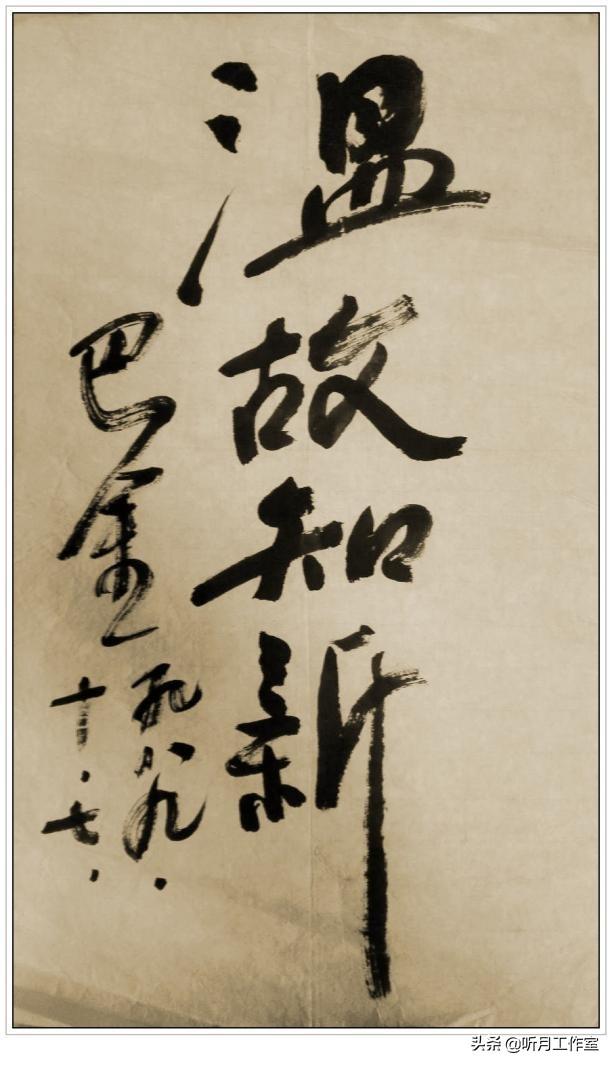 温故知新
巴金
一九八九.
十.七.
头条 @听月工作室